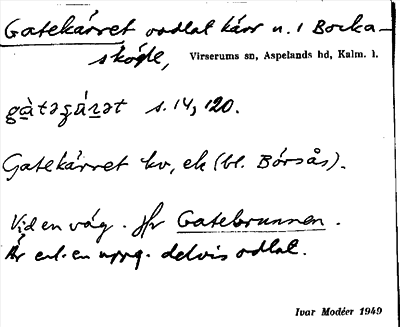 Gatekärret odlat kärr n. i Bocka-
skógle,
Virserums sn, Aspelands hd, Kalm. l.
gàtəʒárət s. 14, 120.
Gatekärret kv, ek (bl. Börsås).
Vid en väg. Jfr Gatebrunnen.
Är enl. en uppg. delvis odlat.
Ivar Modéer 1949